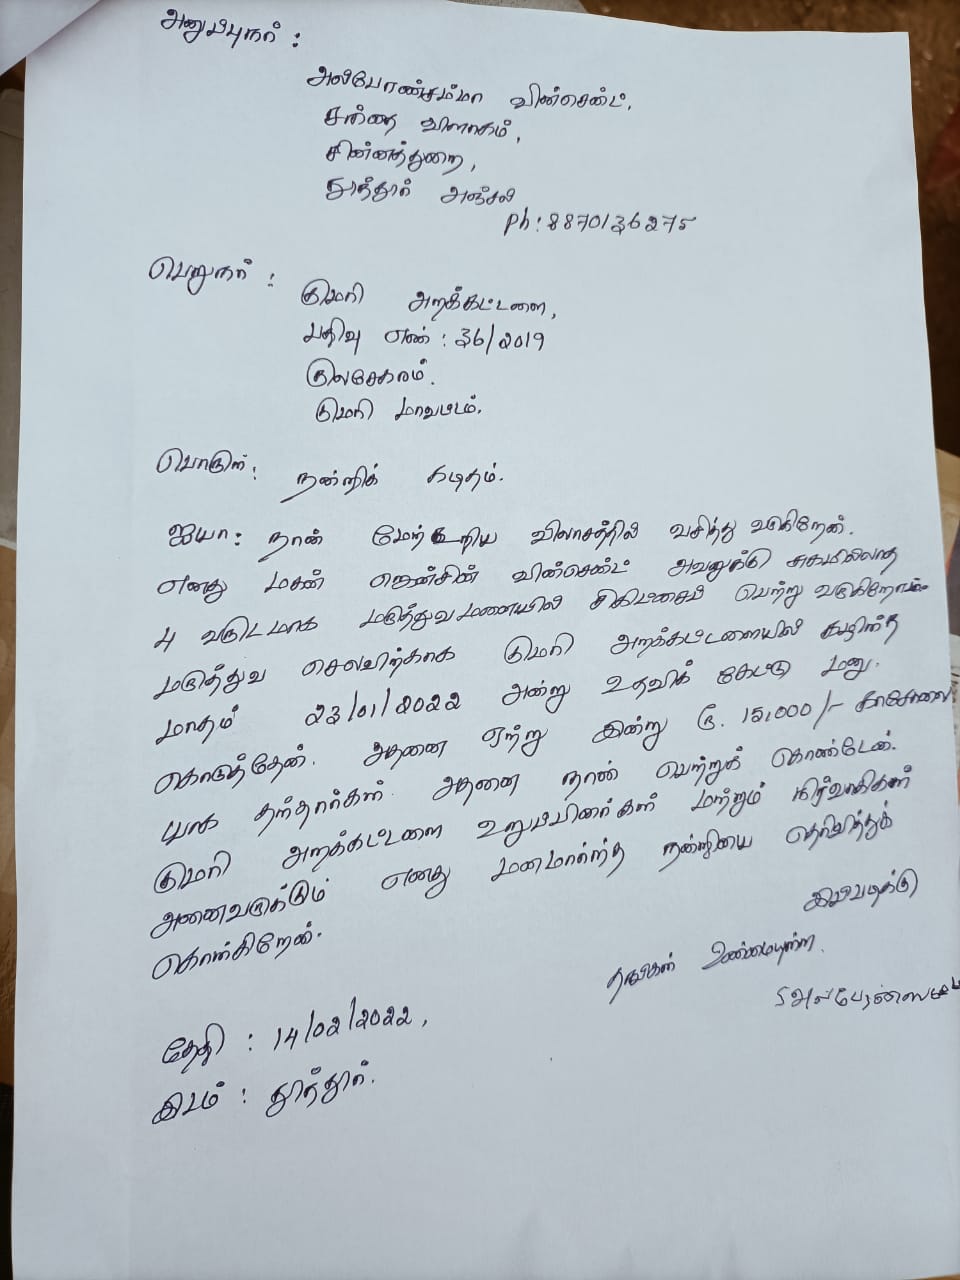 அனுப்புநர் :
அல்போன்சம்மா வின்சென்ட்,
சந்தை விளாகம்,
சின்னத்துறை,
தூத்தூர் அஞ்சல்
Ph: 8870136275
பெறுநர் :
குமரி அறக்கட்டளை,
பதிவு எண் : 36/2019
குலசேகரம்.
குமரி மாவட்டம்.
பொருள்: நன்றிக் கடிதம்.
ஐயா: நான் மேற்கூறிய விலாசத்தில் வசித்து வருகிறேன்.
எனது மகன் ஜென்சின் வின்சென்ட் அவனுக்கு சுகமில்லாத
4 வருடமாக மருத்துவமனையில் சிகிட்சை பெற்று வருகிறோம்.
மருத்துவ செலவிற்காக குமரி அறக்கட்டளையில் கழிந்த
மாதம் 23/01/2022 அன்று உதவிக் கேட்டு மனு.
கொடுத்தேன். அதனை ஏற்று இன்று ரூ. 15,000/- காசோலை
யாக தந்தார்கள். அதனை நான் பெற்றுக் கொண்டேன்.
குமரி அறக்கட்டளை உறுப்பினர்கள் மற்றும் நிர்வாகிகள்
அனைவருக்கும் எனது மனமார்ந்த நன்றியை தெரிவித்துக்
கொள்கிறேன்.
இப்படிக்கு
தங்கள் உண்மையுள்ள.
தேதி : 14/02/2022,
இடம் : தூத்தூர்.